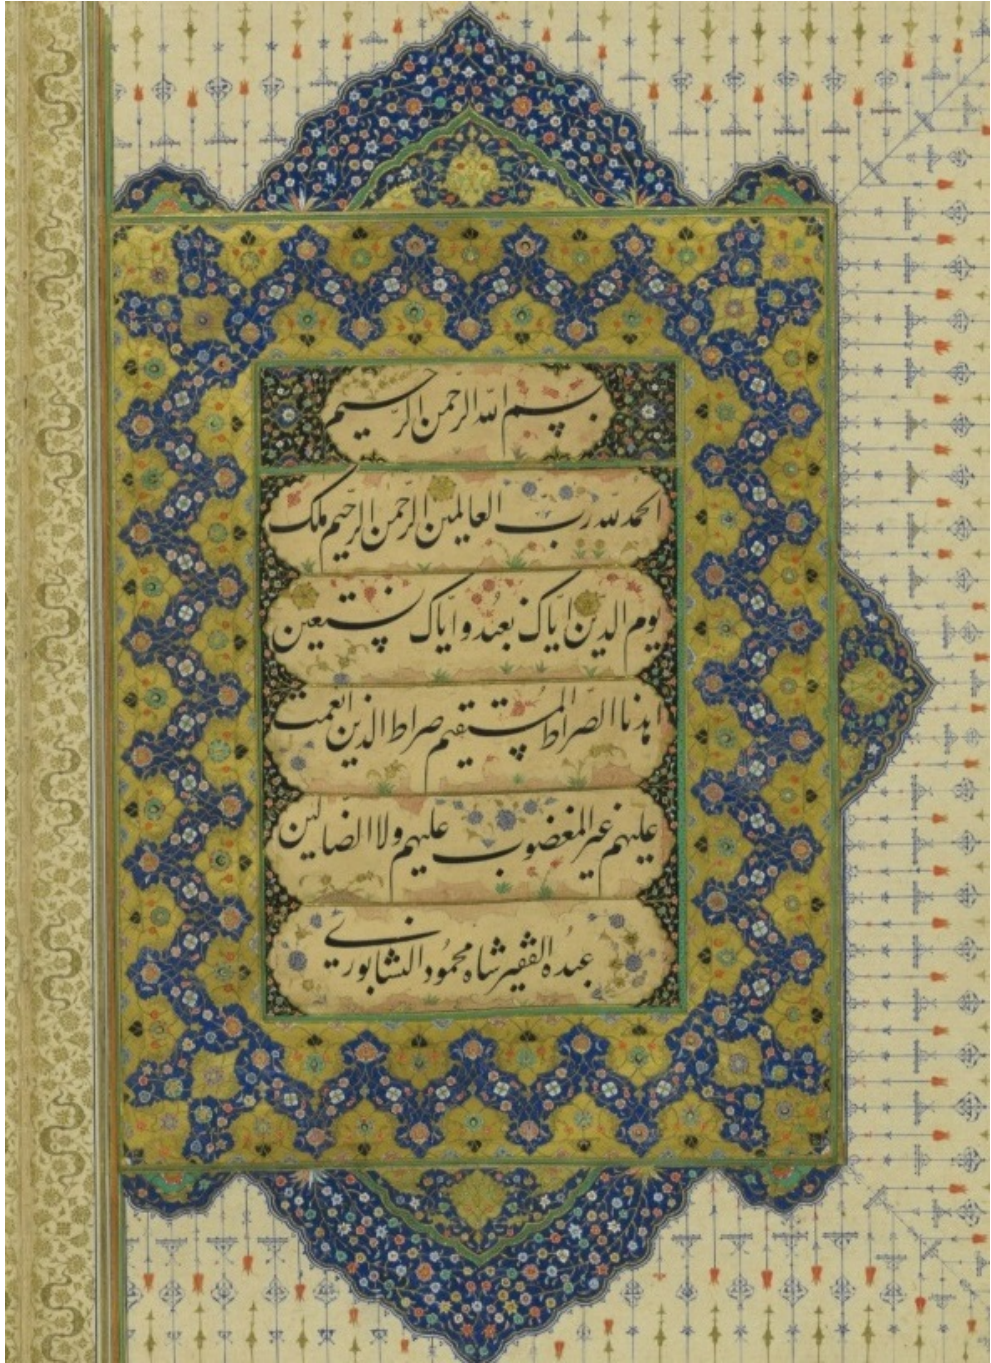 بسم الله الرحمن الرحيم
الحمد لله رب العالمين الرحمن الرحيم ملك
يوم الدين اياك نعبد و اياك نستعين
اهدنا الصراط المستقيم صراط الذين انعمت
عليهم غير المغضوب عليهم ولا الضالين
عبده الفقير شاه محمود النشابوري